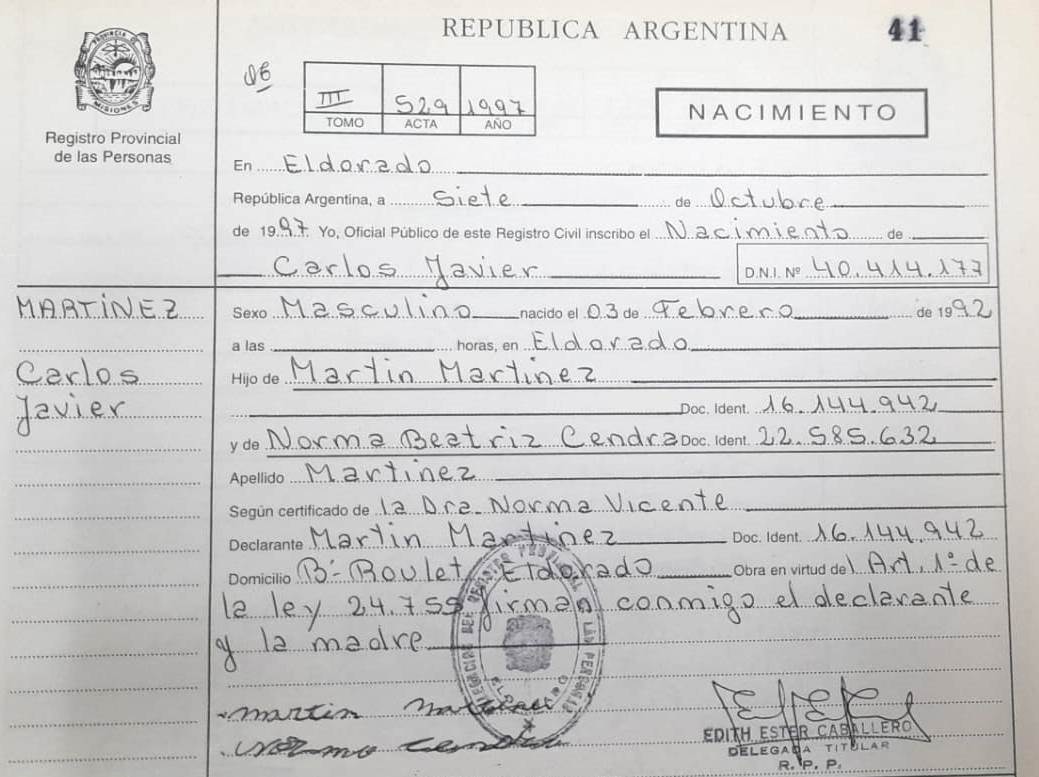 REPUBLICA ARGENTINA
41
PROVINCIA DE
MISIONES
Registro Provincial
de las Personas
III 529 1997
TOMO ACTA AÑO
NACIMIENTO
En Eldorado
República Argentina, a siete de Octubre
de 1997 Yo, Oficial Público de este Registro Civil inscribo el Nacimiento de
Carlos Javier D.N.I. Nº 40.414.177
MARTíNEZ
Carlos
Javier
Sexo Masculino nacido el 03 de Febrero de 1992
a las horas, en Eldorado
Hijo de Martin Martinez
Doc. Ident. 16.144.942
y de Norma Beatriz Cendra Doc. Ident. 22.585.632
Apellido Martinez
Según certificado de la Dra. Norma Vicente
Declarante Martin Martinez Doc. Ident. 16.144.942
Domicilio Bº Roulet Eldorado Obra en virtud del Art. 1º de
la ley 24.755 firman conmigo el declarante
y la madre
martin martinez
Norma Cendra
EDITH ESTER CABALLERO
DELEGADA TITULAR
R. P. P.